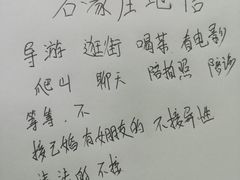 石家庄地陪
导游 逛街 喝茶 看电影
爬山 聊天 陪拍照 陪诊
等等. 不
接已婚有女朋友的 不接异性
违法的不接